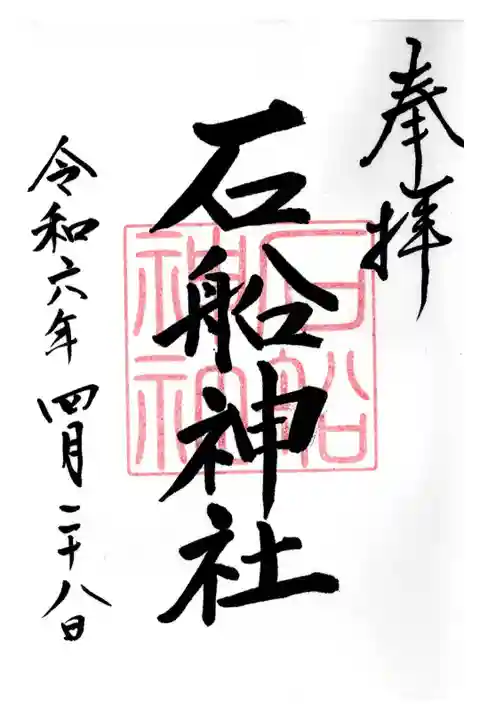 奉拝
石船神社
石船
神社
令和六年四月二十八日